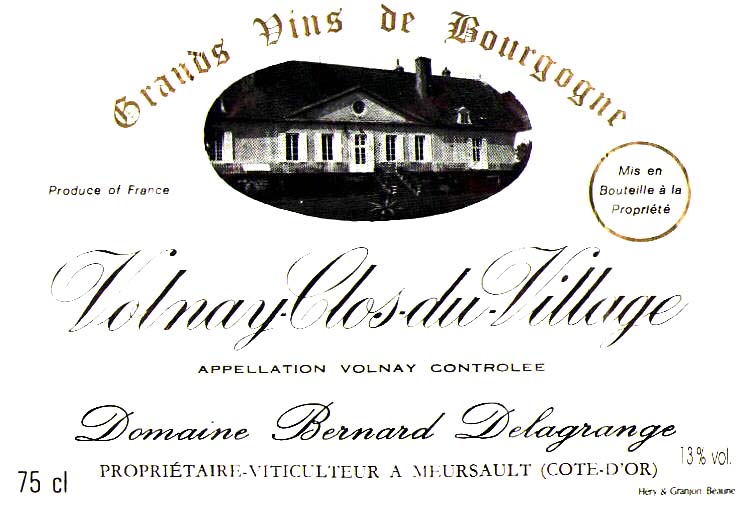 Grands Vins de Bourgogne
Produce of France
Mis en
Bouteille à la
Propriété
Volnay-Clos-du-Village
APPELLATION VOLNAY CONTROLEE
Domaine Bernard Delagrange
13% vol.
75 cl
PROPRIÉTAIRE-VITICULTEUR A MEURSAULT (COTE-D'OR)
Héry & Granjon Beaune